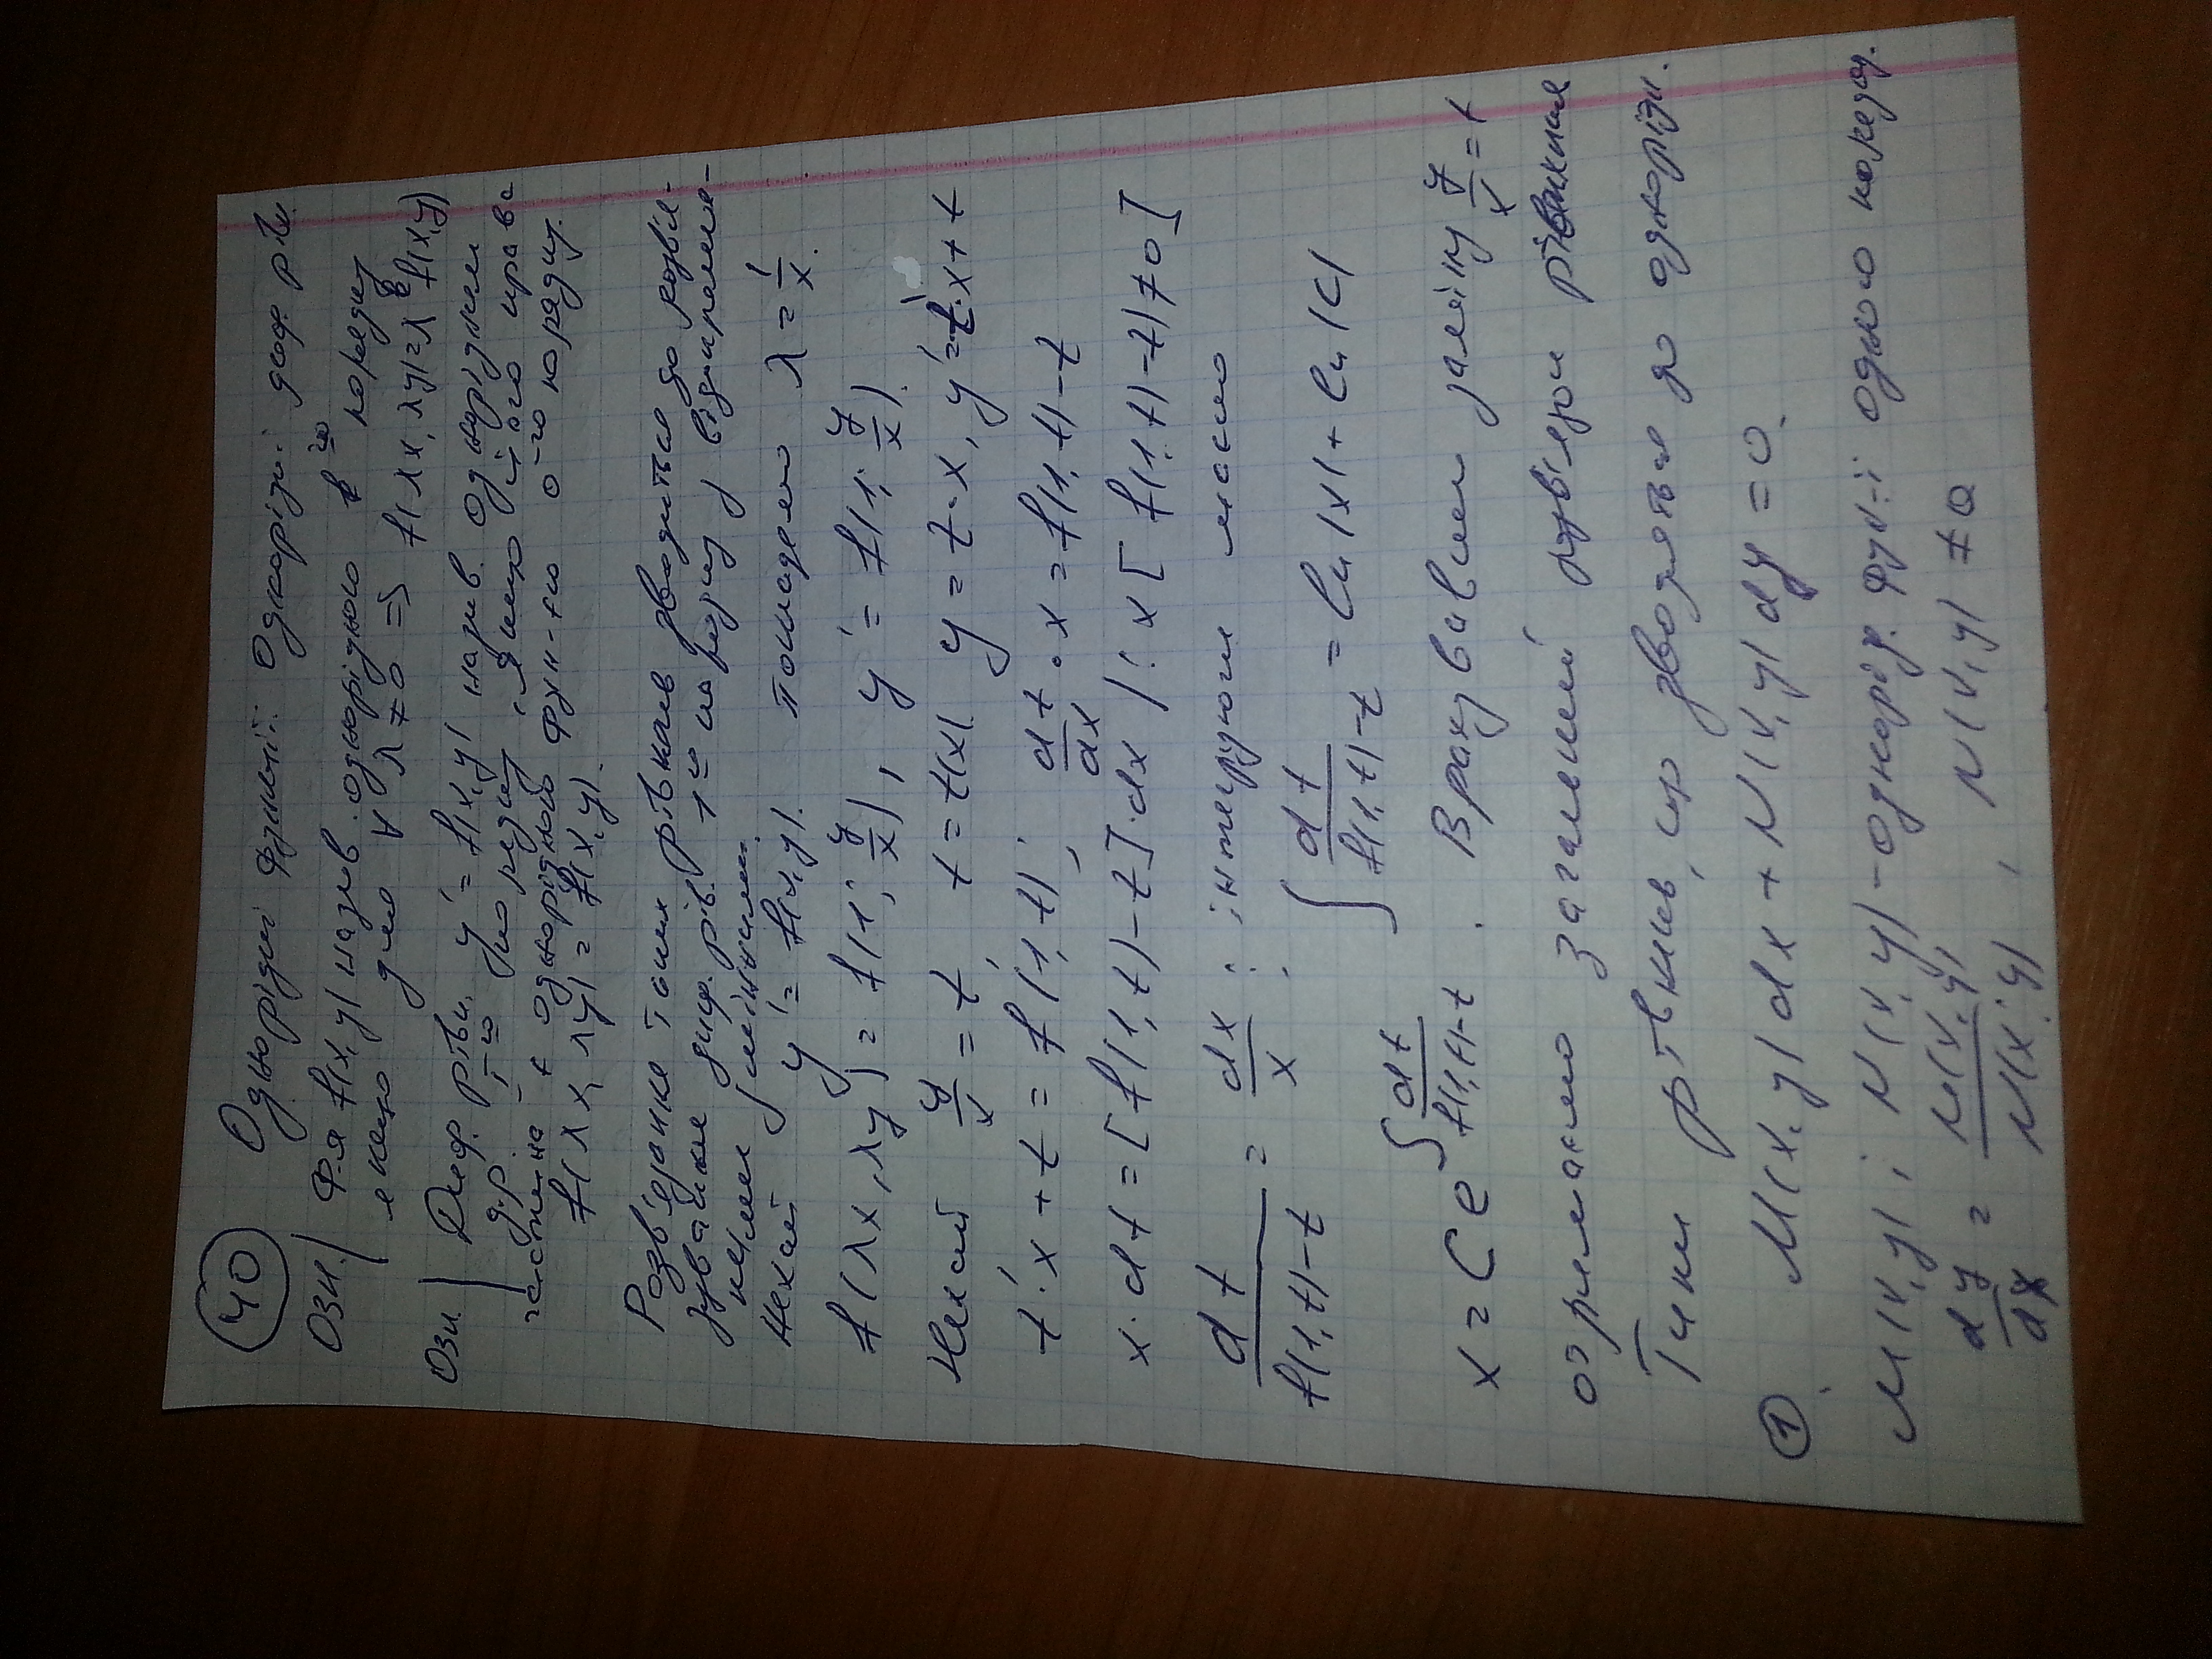 40 Однорідні функції. Однорідні диф. рівн.
Озн. Ф-я f(x,y) назив. однорідною k го порядку
якщо для ∀ λ ≠ 0 => f(λx, λy) = λ^k f(x,y)
Озн. Диф. рівн. y' = f(x,y) назив. однорідним
д.р. I го порядку, якщо його права
частина є однорідною фун-єю 0-го порядку.
f(λx, λy) = f(x,y).
Розв'язання таких рівнянь зводиться до розв'я-
зування диф. рів. 1 го порядку з відокремлю-
ними змінними.
Нехай y' = f(x,y). покладемо λ = 1/x.
f(λx, λy) = f(1; y/x), y' = f(1; y/x).
Нехай y/x = t, t = t(x). y = t·x, y' = t'·x + t
t'·x + t = f(1,t); dt/dx · x = f(1,t) - t
x·dt = [f(1,t) - t]·dx /: x [f(1,t) - t) ≠ 0]
dt/(f(1,t) - t) = dx/x; інтегруючи маємо
∫ dt/(f(1,t) - t) = ln|x| + ln|C|
x = C e^(∫ dt/(f(1,t) - t)). Врахувавши заміну y/x = t
отримаємо загальний розв'язок рівняння
Типи рівнянь, що зводяться до однорідн.
① M(x,y)dx + N(x,y)dy = 0.
M(x,y) і N(x,y) - однорід. фун-ії одного порядку.
dy/dx = M(x,y)/N(x;y), N(x,y) ≠ 0